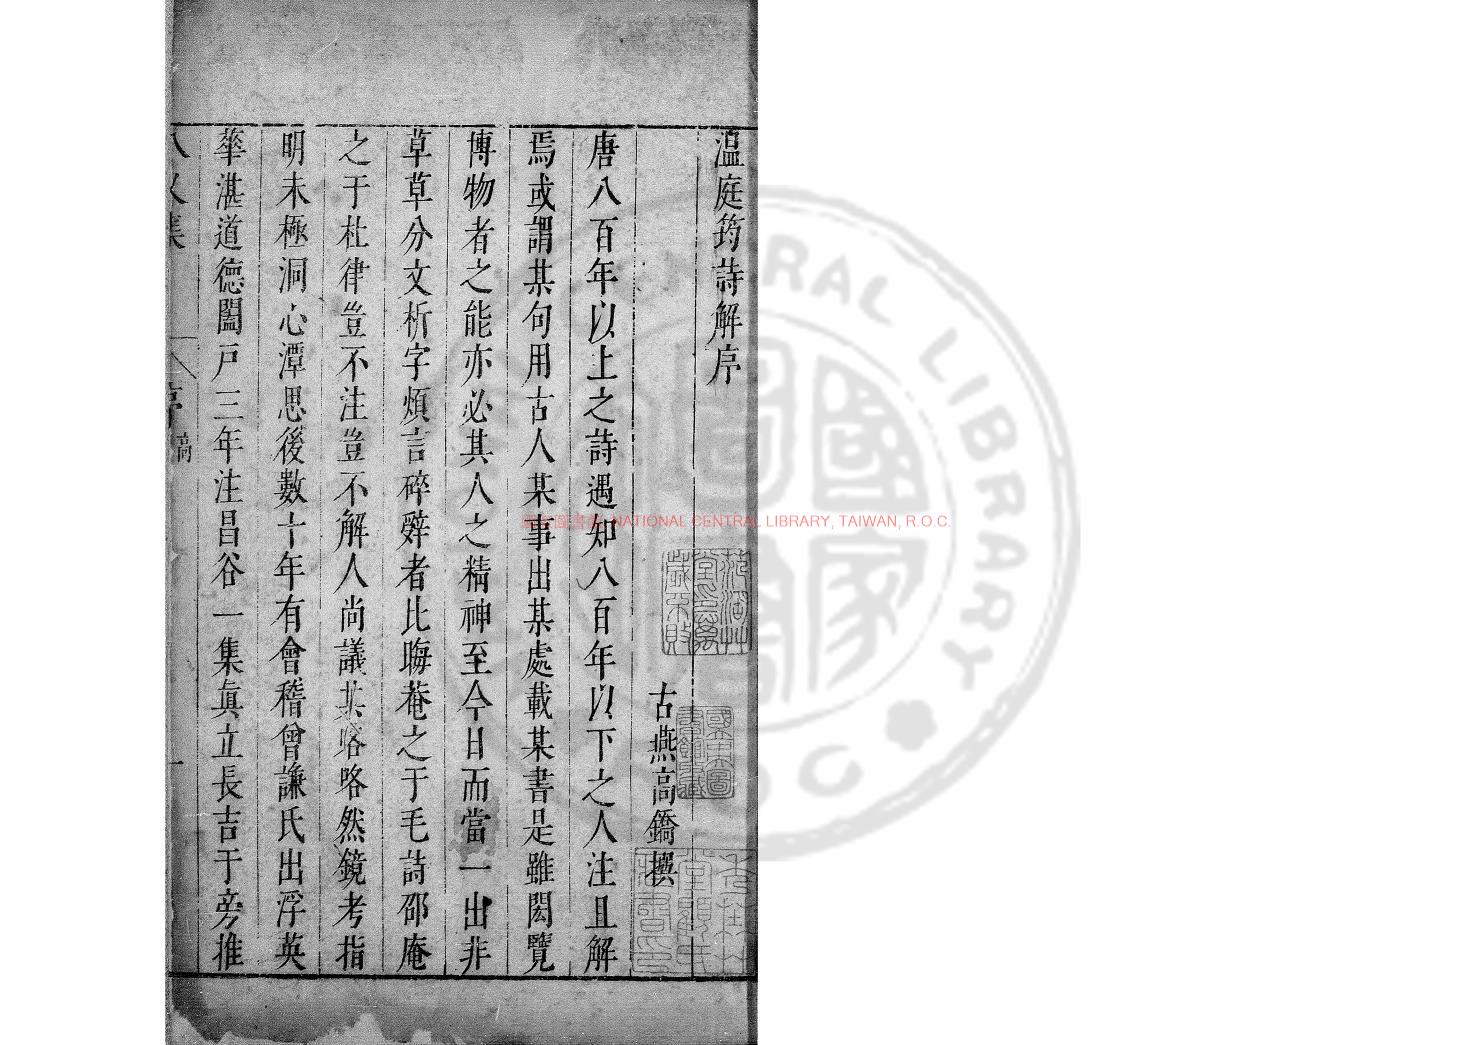 溫庭筠詩解序
古燕高鐈撰
唐八百年以上之詩遇知八百年以下之人注且解
焉或謂某句用古人某事出某處載某書是雖閎覽
博物者之能亦必其人之精神至今日而當一出非
草草分文析字煩言碎辭者比晦菴之于毛詩邵庵
之于杜律豈不注豈不解人尚議其略然鏡考指
明未極洞心潭思後數十年有會稽曾謙氏出浮英
華湛道德闔戶三年注昌谷一集眞立長吉于旁推
集
序
一
NATIONAL CENTRAL LIBRARY, TAIWAN, R.O.C.